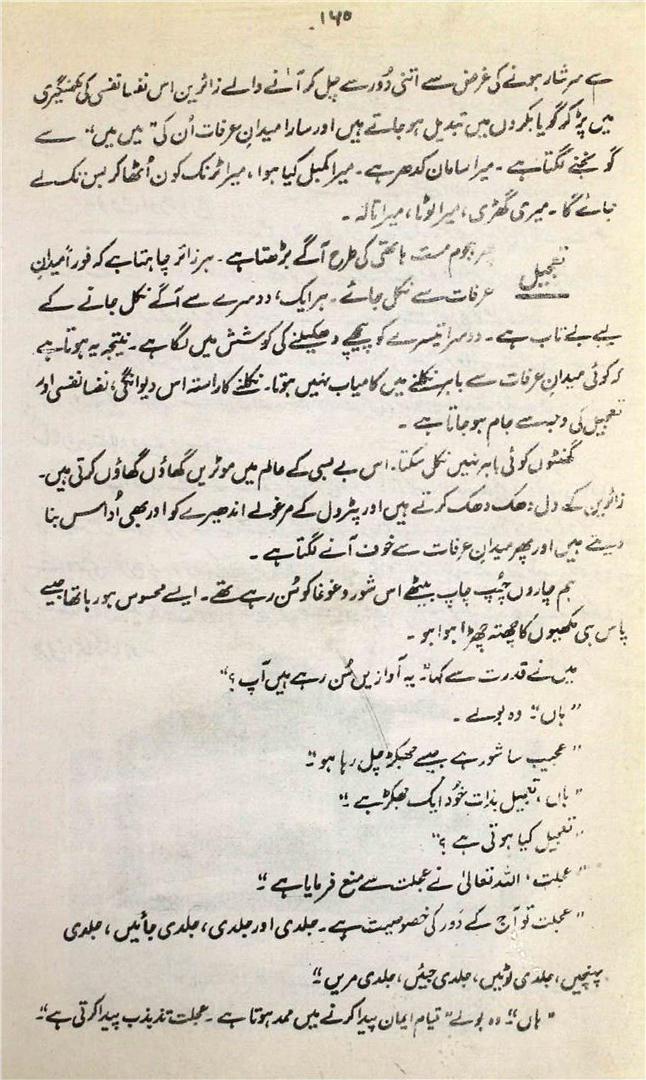 ۱۶۵
سے سرشار ہونے کی غرض سے اتنی دُور سے چل کر آنے والے زائرین اس نفسا نفسی کی گھمنگیری
میں پڑ کر گویا بکروں میں تبدیل ہو جاتے ہیں اور سارا میدانِ عرفات اُن کی "میں میں" سے
گونجنے لگتا ہے۔ میرا سامان کدھر ہے۔ میرا کمبل کیا ہوا، میرا ٹرنک کون اُٹھا کر بس تک لے
جائے گا۔ میری گٹھڑی، میرا لوٹا، میرا تالہ۔
تعجیل
پھر ہجوم مست ہاتھی کی طرح آگے بڑھتا ہے۔ ہر زائر چاہتا ہے کہ فوراً میدانِ
عرفات سے نکل جائے۔ ہر ایک، دوسرے سے آگے نکل جانے کے
لیے بے تاب ہے۔ دوسرا تیسرے کو پیچھے دھکیلنے کی کوشش میں لگا ہے۔ نتیجہ یہ ہوتا ہے
کہ کوئی میدانِ عرفات سے باہر نکلنے میں کامیاب نہیں ہوتا۔ نکلنے کا راستہ اس دیوانگی، نفسا نفسی اور
تعجیل کی وجہ سے جام ہو جاتا ہے۔
گھنٹوں کوئی باہر نہیں نکل سکتا۔ اس بے بسی کے عالم میں موٹریں گھاؤں گھاؤں کرتی ہیں۔
زائرین کے دل دھک دھک کرتے ہیں اور پٹرول کے مرغولے اندھیرے کو اور بھی اُداس بنا
دیتے ہیں اور پھر میدانِ عرفات سے خوف آنے لگتا ہے۔
ہم چاروں چُپ چاپ بیٹھے اس شور و غوغا کو سُن رہے تھے۔ ایسے محسوس ہو رہا تھا جیسے
پاس ہی مکھیوں کا چھتہ چھڑا ہوا ہو۔
میں نے قدرت سے کہا۔ "یہ آوازیں سُن رہے ہیں آپ؟"
"ہاں" وہ بولے۔
"عجیب سا شور ہے جیسے جھکڑ چل رہا ہو۔"
"ہاں، تعجیل بذاتِ خُود ایک جھکڑ ہے۔"
"تعجیل کیا ہوتی ہے؟"
"عجلت، اللہ تعالیٰ نے عجلت سے منع فرمایا ہے۔"
"عجلت تو آج کے دَور کی خصوصیت ہے۔ جلدی اور جلدی، جلدی جائیں، جلدی
پہنچیں، جلدی لوٹیں، جلدی جیئں، جلدی مریں۔"
"ہاں" وہ بولے "قیام ایمان پیدا کرنے میں ممد ہوتا ہے۔ عجلت تذبذب پیدا کرتی ہے۔"